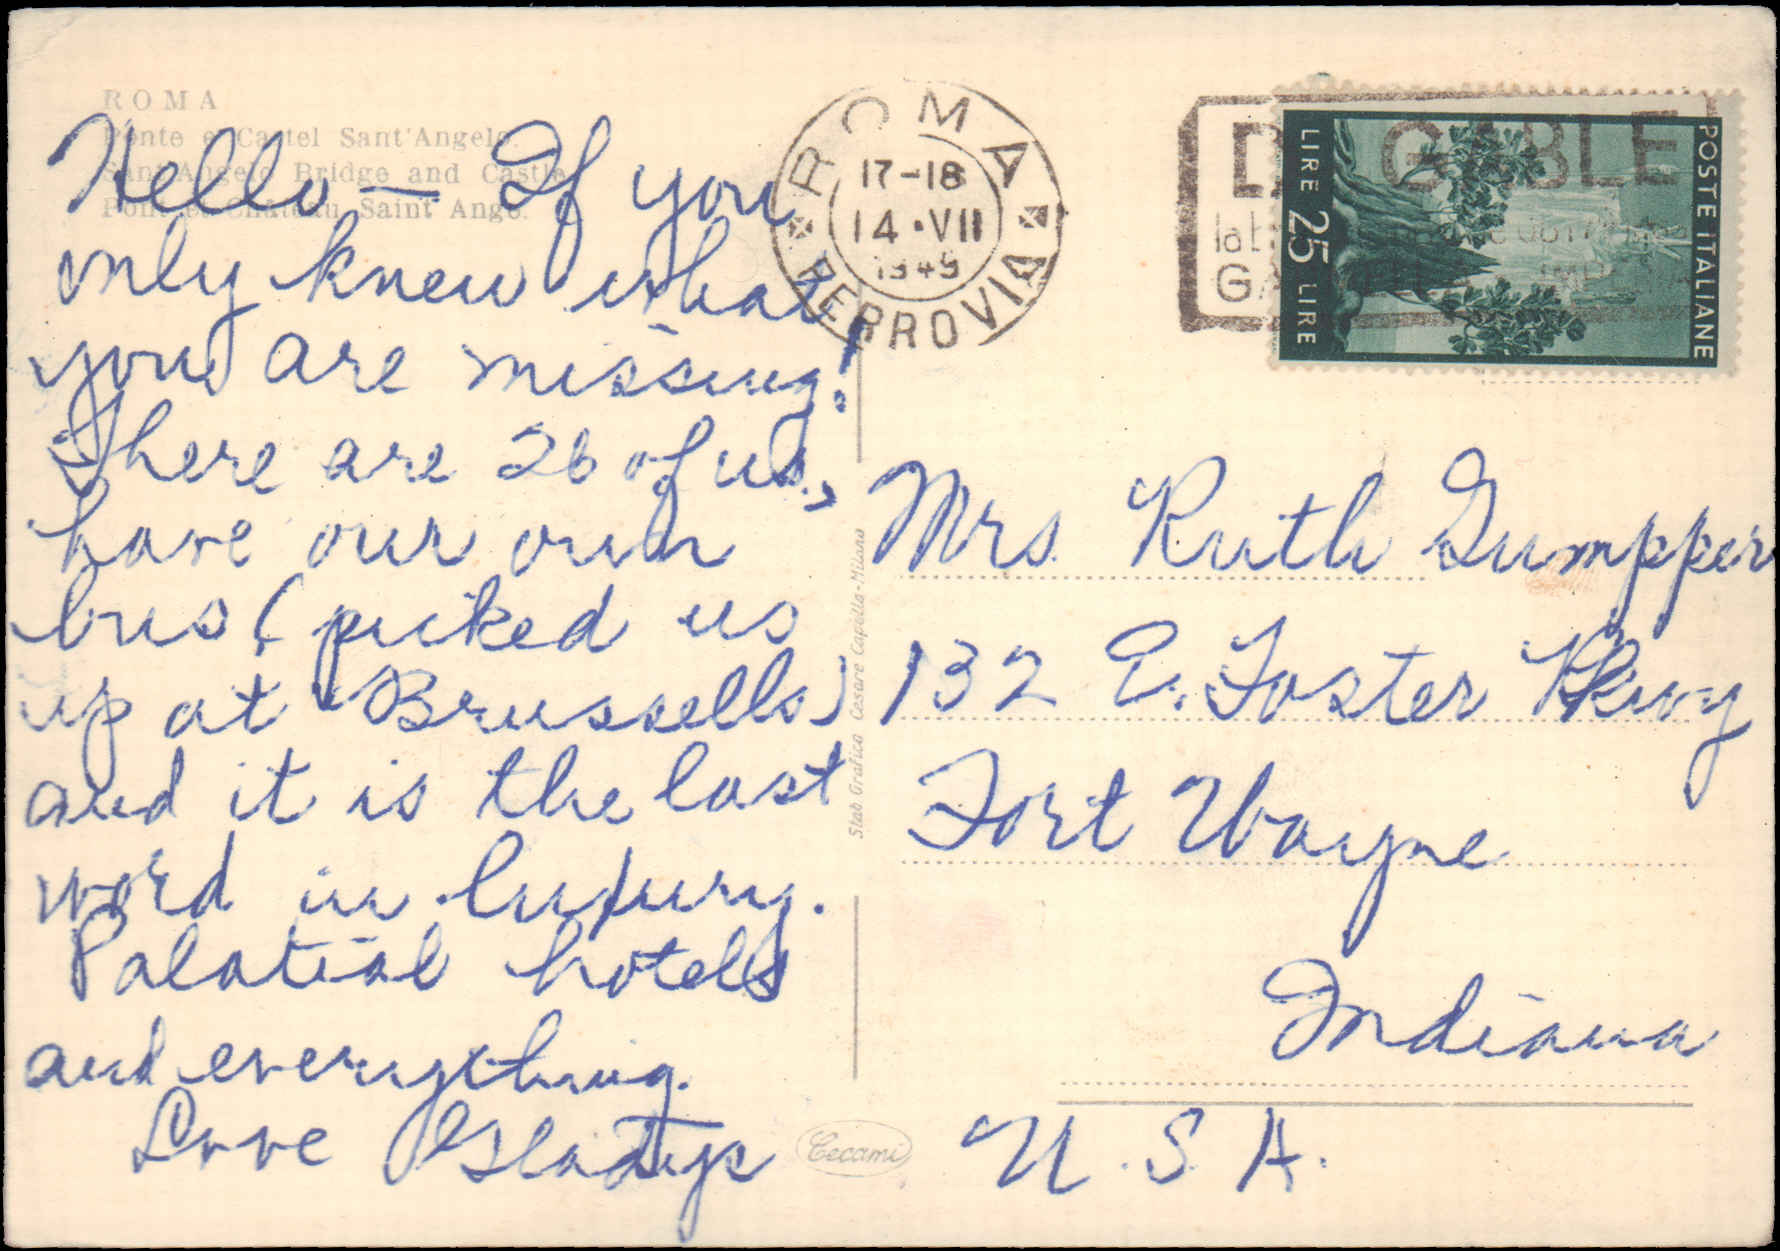 ROMA
Ponte e Castel Sant'Angelo.
Sant'Angelo Bridge and Castle
Pont et Château Saint Ange.
Hello — If you
only knew what
you are missing!
There are 26 of us,
have our own
bus (picked us
up at Brussells)
and it is the last
word in luxury.
Palatial hotels
and everything.
Love Gladys
ROMA
17-18
14·VII
1949
FERROVIA
POSTE ITALIANE
LIRE 25 LIRE
Stab Grafico Cesare Capello-Milano
Cecami
Mrs. Ruth Gumpper
132 E. Foster Pkwy
Fort Wayne
Indiana
U.S.A.